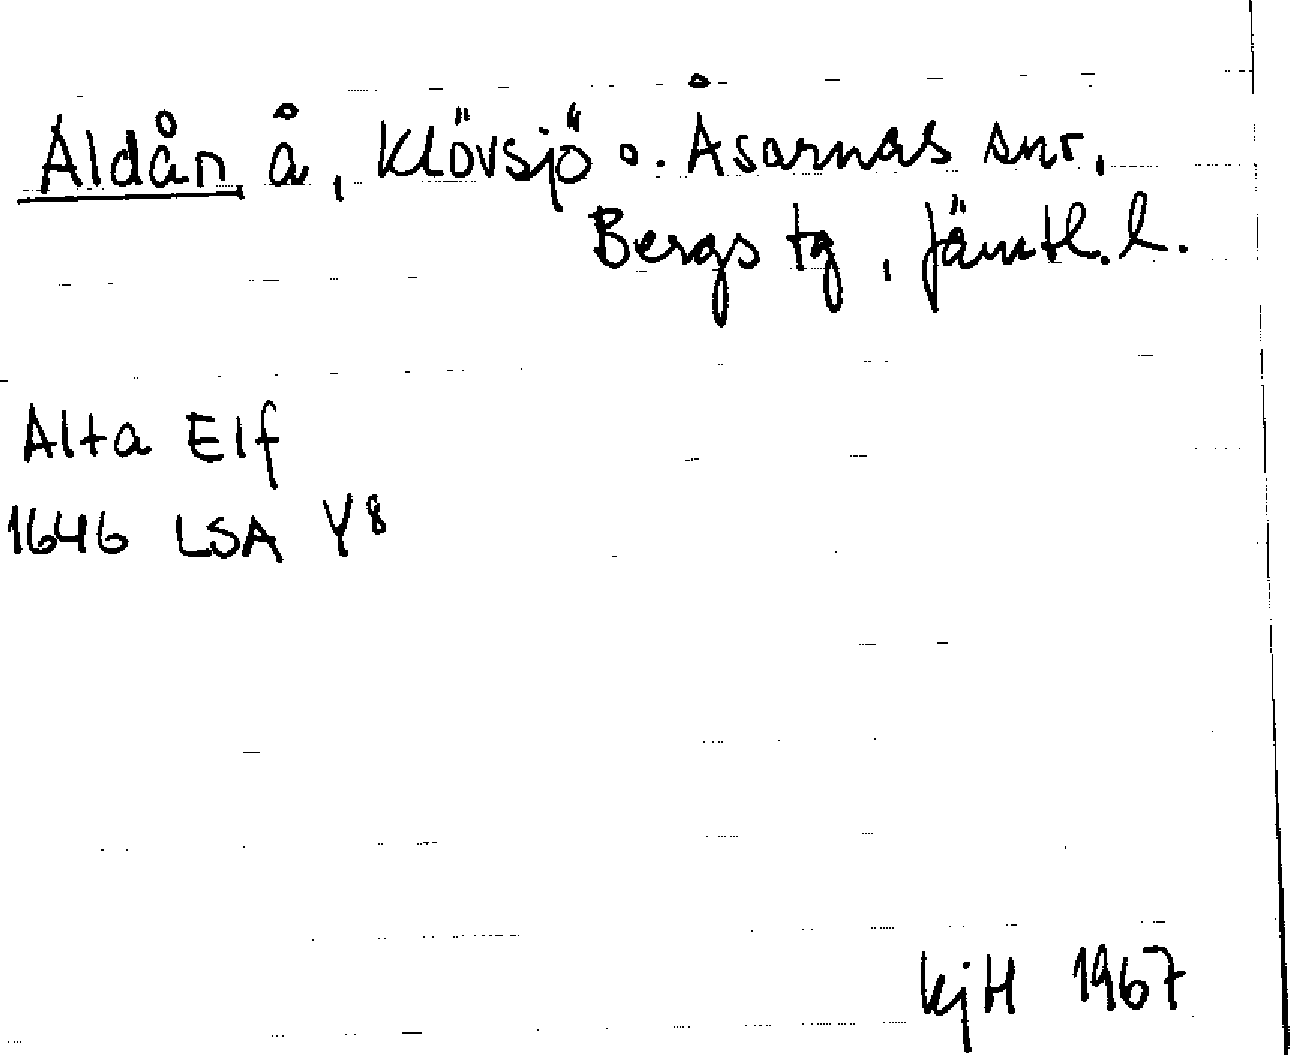 Aldån å, Klövsjö o. Åsarnas snr,
Bergs tg, Jämtl. l.
Alta Elf
1646 LSA Y8
KjH 1967